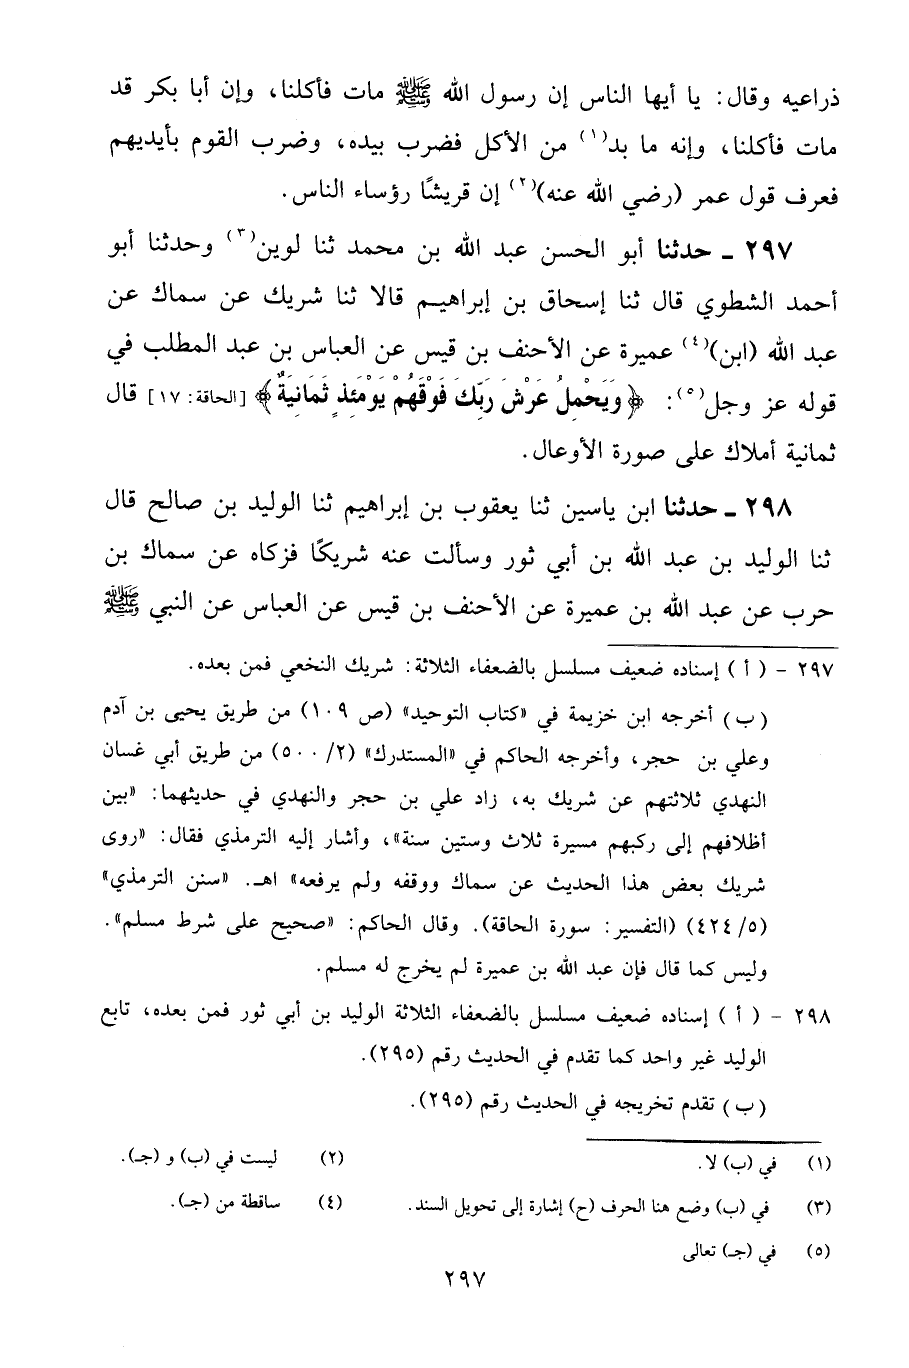 ذراعيه وقال: يا أيها الناس إن رسول الله ﷺ مات فأكلنا، وإن أبا بكر قد
مات فأكلنا، وإنه ما بد(١) من الأكل فضرب بيده، وضرب القوم بأيديهم
فعرف قول عمر (رضي الله عنه)(٢) إن قريشًا رؤساء الناس.
٢٩٧ ـ حدثنا أبو الحسن عبد الله بن محمد ثنا لوين(٣) وحدثنا أبو
أحمد الشطوي قال ثنا إسحاق بن إبراهيم قالا ثنا شريك عن سماك عن
عبد الله (ابن)(٤) عميرة عن الأحنف بن قيس عن العباس بن عبد المطلب في
قوله عز وجل(٥): ﴿وَيَحْمِلُ عَرْشَ رَبِّكَ فَوْقَهُمْ يَوْمَئِذٍ ثَمَانِيَةٌ﴾ [الحاقة: ١٧] قال
ثمانية أملاك على صورة الأوعال.
٢٩٨ ـ حدثنا ابن ياسين ثنا يعقوب بن إبراهيم ثنا الوليد بن صالح قال
ثنا الوليد بن عبد الله بن أبي ثور وسألت عنه شريكًا فزكاه عن سماك بن
حرب عن عبد الله بن عميرة عن الأحنف بن قيس عن العباس عن النبي ﷺ
٢٩٧ - (أ) إسناده ضعيف مسلسل بالضعفاء الثلاثة: شريك النخعي فمن بعده.
(ب) أخرجه ابن خزيمة في «كتاب التوحيد» (ص ١٠٩) من طريق يحيى بن آدم
وعلي بن حجر، وأخرجه الحاكم في «المستدرك» (٢/ ٥٠٠) من طريق أبي غسان
النهدي ثلاثتهم عن شريك به، زاد علي بن حجر والنهدي في حديثهما: «بين
أظلافهم إلى ركبهم مسيرة ثلاث وستين سنة»، وأشار إليه الترمذي فقال: «روى
شريك بعض هذا الحديث عن سماك ووقفه ولم يرفعه» اهـ. «سنن الترمذي»
(٥/ ٤٢٤) (التفسير: سورة الحاقة). وقال الحاكم: «صحيح على شرط مسلم».
وليس كما قال فإن عبد الله بن عميرة لم يخرج له مسلم.
٢٩٨ - (أ) إسناده ضعيف مسلسل بالضعفاء الثلاثة الوليد بن أبي ثور فمن بعده، تابع
الوليد غير واحد كما تقدم في الحديث رقم (٢٩٥).
(ب) تقدم تخريجه في الحديث رقم (٢٩٥).
(١) في (ب) لا. (٢) ليست في (ب) و (جـ).
(٣) في (ب) وضع هنا الحرف (ح) إشارة إلى تحويل السند. (٤) ساقطة من (جـ).
(٥) في (جـ) تعالى
٢٩٧